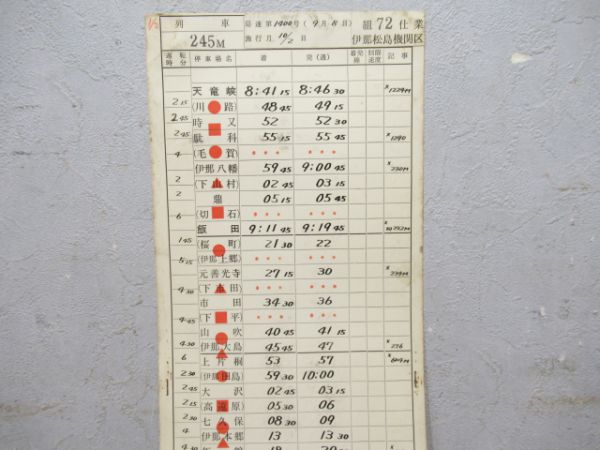 列車 局達第1400号(9月8日) 組72仕業
245M 施行月10/2日 伊那松島機関区
運転時分 停車場名 着 発(通) 着発線 制限速度 記事
天竜峡 8:41 15 8:46 30 ×1229M
2 15 (川路) 48 45 49 15
2 45 時又 52 52 30
2 45 駄科 55 15 55 45 ×1290
4 (毛賀) • • • • • •
伊那八幡 59 45 9:00 45 ×230M
2 (下山村) 02 45 03 15
2 鼎 05 15 05 45
6 (切石) • • • • • •
飯田 9:11 45 9:19 45
1 45 (桜町) 21 30 22
5 15 (伊那上郷) • • • • • •
元善光寺 27 15 30 ×234M
4 30 (下市田) • • • • • •
市田 34 30 36
4 45 (下平) • • • • • •
山吹 40 45 41 15
4 伊那大島 45 45 47 ×276
6 上片桐 53 57
2 30 (伊那田島) 59 30 10:00
2 45 大沢 02 45 03 15
2 15 (高遠原) 05 30 06
2 30 七久保 08 30 09
4 伊那本郷 13 13 30